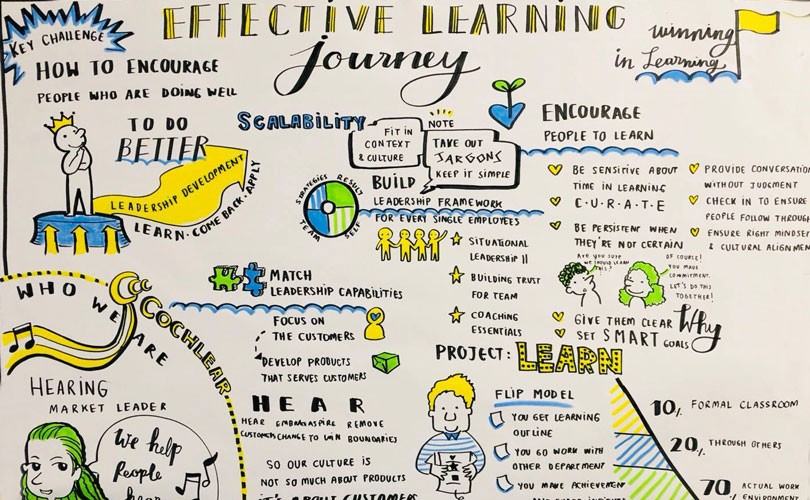 EFFECTIVE LEARNING
journey
KEY CHALLENGE
HOW TO ENCOURAGE
PEOPLE WHO ARE DOING WELL
TO DO
BETTER
LEADERSHIP DEVELOPMENT
LEARN. COME BACK. APPLY
winning
in Learning
SCALABILITY
FIT IN
CONTEXT
& CULTURE
NOTE
TAKE OUT
JARGONS
KEEP IT SIMPLE
STRATEGIES
RESULT
TEAM
SELF
BUILD
LEADERSHIP FRAMEWORK
FOR EVERY SINGLE EMPLOYEES
SITUATIONAL
LEADERSHIP II
BUILDING TRUST
FOR TEAM
COACHING
ESSENTIALS
ENCOURAGE
PEOPLE TO LEARN
BE SENSITIVE ABOUT
TIME IN LEARNING
C·U·R·A·T·E
BE PERSISTENT WHEN
THEY'RE NOT CERTAIN
PROVIDE CONVERSATION
WITHOUT JUDGMENT
CHECK IN TO ENSURE
PEOPLE FOLLOW THROUGH
ENSURE RIGHT MINDSE
& CULTURAL ALIGNMEN
Are you sure
we should learn
this?
OF COURSE!
YOU MADE
COMMITMENT.
LET'S DO THIS
TOGETHER!
GIVE THEM CLEAR Why
SET SMART GOALS
MATCH
LEADERSHIP CAPABILITIES
FOCUS ON
THE CUSTOMERS
DEVELOP PRODUCTS
THAT SERVES CUSTOMERS
WHO WE ARE
COCHLEAR
HEARING
MARKET LEADER
We help
People
hear
HEAR
HEAR EMBRACE ASPIRE REMOVE
CUSTOMERS CHANGE TO WIN BOUNDARIES
SO OUR CULTURE IS
NOT SO MUCH ABOUT PRODUCTS
IT'S ABOUT CUSTOMERS
PROJECT: LEARN
FLIP MODEL
YOU GET LEARNING
OUTLINE
YOU GO WORK WITH
OTHER DEPARTMENT
YOU MAKE ACHIEVEMEN
10% FORMAL CLASSROOM
20% THROUGH OTHERS
70 ACTUAL WORK
ENVIRONMENT